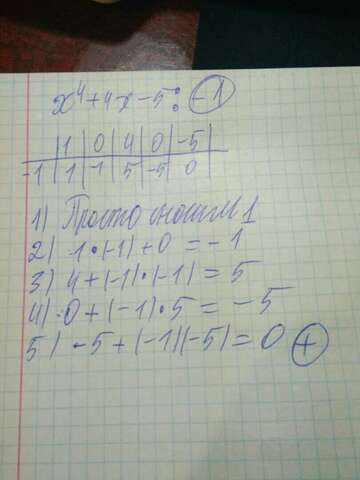 x⁴+4x-5 : -1
1 | 0 | 4 | 0 | -5
-1 | 1 | -1 | 5 | -5 | 0
1) Просто сносим 1
2) 1·(-1)+0 = -1
3) 4+(-1)·(-1) = 5
4) 0+(-1)·5 = -5
5) -5+(-1)(-5) = 0 +